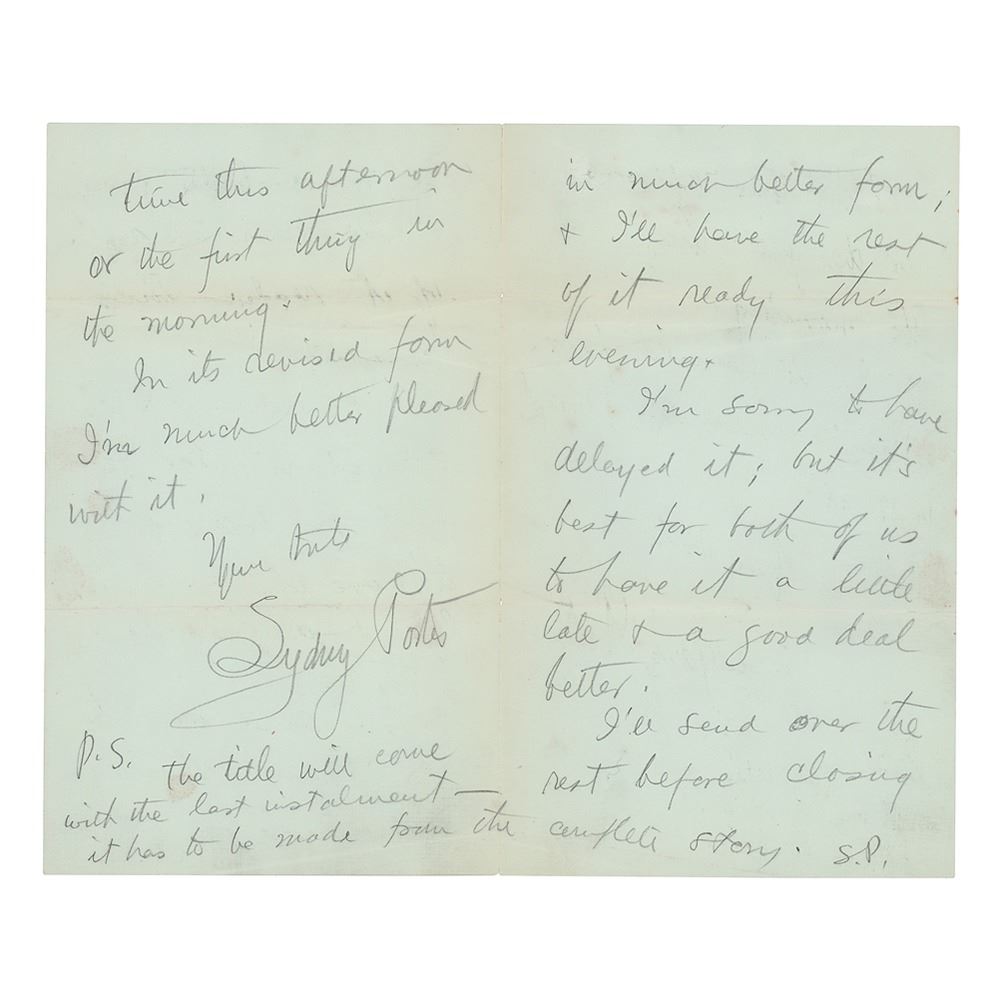 in much better form;
& I'll have the rest
of it ready this
evening.
I'm sorry to have
delayed it; but it's
best for both of us
to have it a little
late & a good deal
better.
I'll send over the
rest before closing
time this afternoon
or the first thing in
the morning.
In its revised form
I'm much better pleased
with it.
Yours truly
Sydney Porter
P.S. the title will come
with the last instalment —
it has to be made from the complete story. S.P.